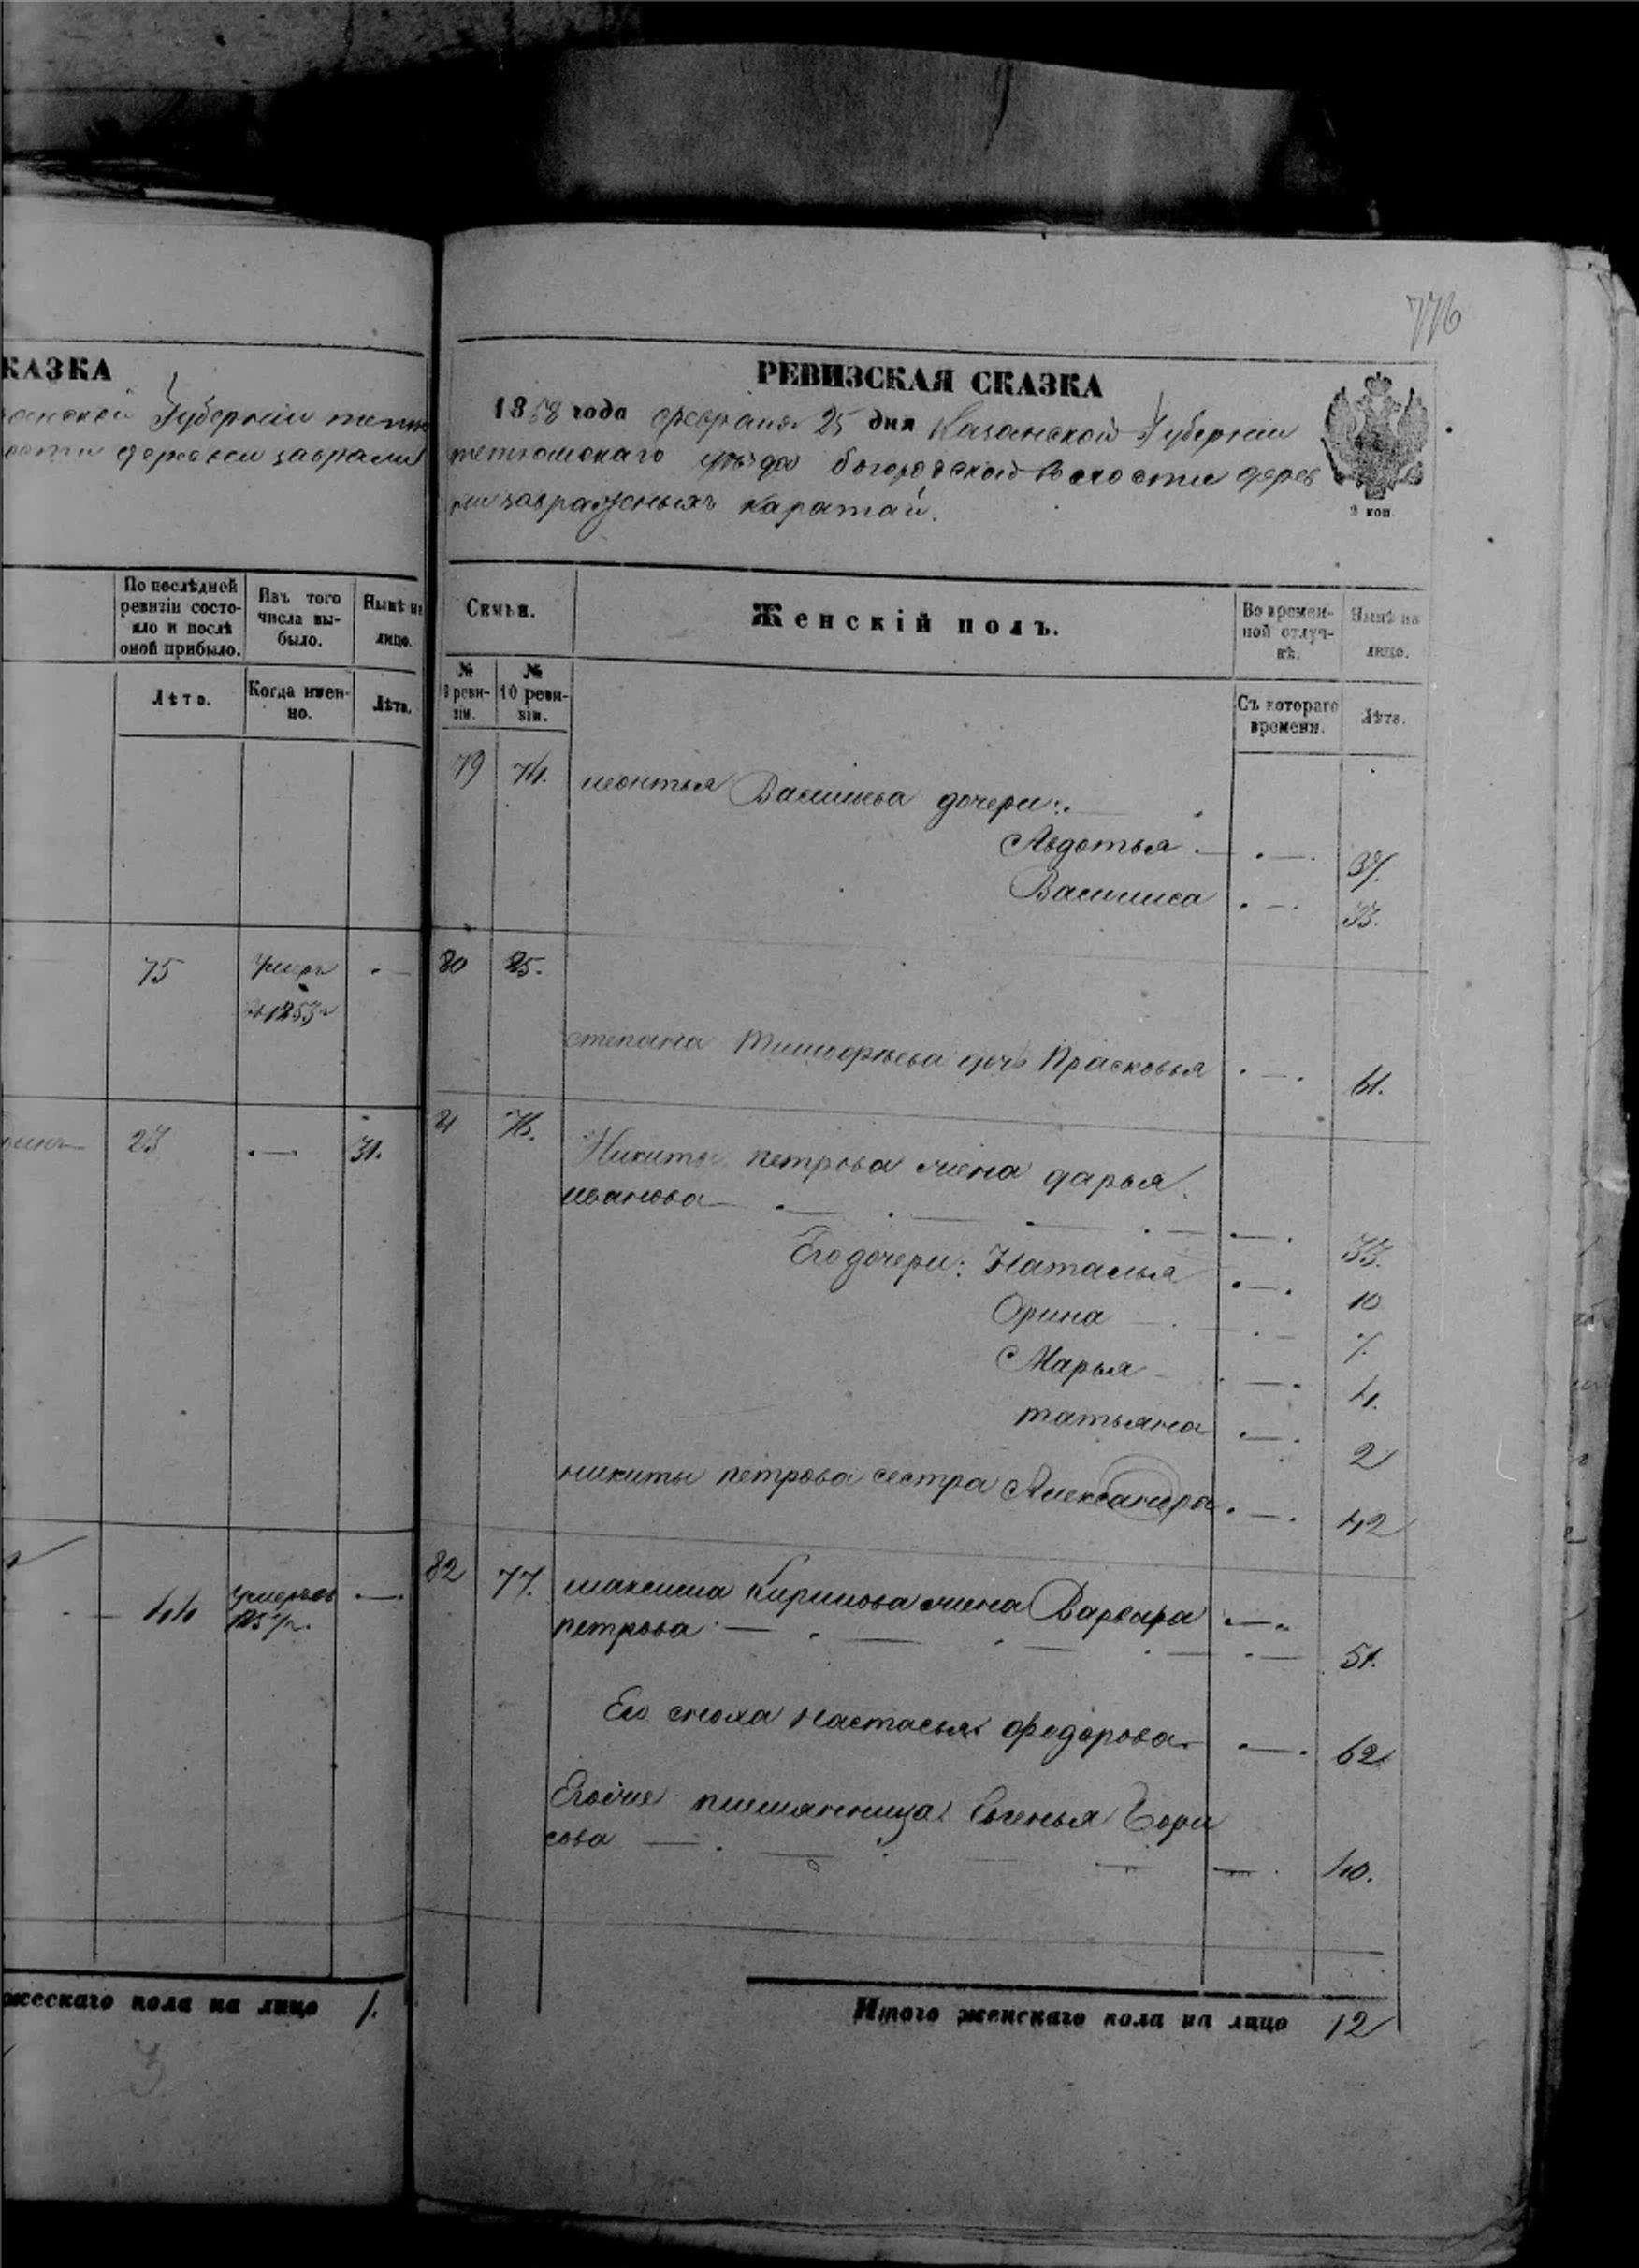 776
КАЗКА
Губерніи
деревни завраж
По послѣдней ревизіи состояло и послѣ оной прибыло.
Изъ того числа выбыло.
Нынѣ на лицо.
Лѣта.
Когда именно.
Лѣта.
75
умеръ
въ 1853 г
23
31.
44
умеръ въ
185
жескаго пола на лицо 1.
3
РЕВИЗСКАЯ СКАЗКА
1858 года февраля 25 дня Казанской Губерніи
тетюшскаго уѣзда богородской волости дерев
ни завражныхъ каратай.
2 коп.
Семьи.
Женскій полъ.
Во временной отлучкѣ.
Нынѣ на лицо.
№ 9 ревизіи.
№ 10 ревизіи.
Съ котораго времени.
Лѣта.
79 74. леонтья Васильева дочери:
Авдотья 37.
Василиса 33.
80 85.
степана Тимофѣева дочь Прасковья 61.
81 76.
Никиты петрова жена дарья
иванова 33.
Его дочери: Наталья 10
Орина 7.
Марья 4.
татьяна 2
никиты петрова сестра Александра 42
82 77. максима Кирилова жена Варвара
петрова 51.
Его сноха настасья федорова 62
Егоже племянница Евгенья Бори
сова 40.
Итого женскаго пола на лицо 12